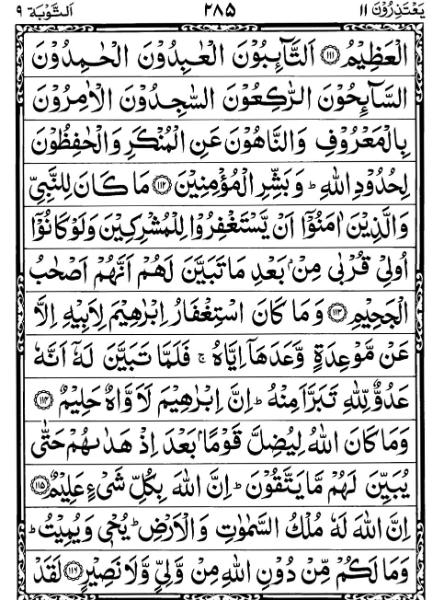 يَعْتَذِرُوْنَ ١١ ٢٨٥ اَلتَّوْبَة ٩
الْعَظِيْمُ ﴿١١١﴾ اَلتَّآئِبُوْنَ الْعٰبِدُوْنَ الْحٰمِدُوْنَ
السَّآئِحُوْنَ الرّٰكِعُوْنَ السّٰجِدُوْنَ الْاٰمِرُوْنَ
بِالْمَعْرُوْفِ وَالنَّاهُوْنَ عَنِ الْمُنْكَرِ وَالْحٰفِظُوْنَ
لِحُدُوْدِ اللّٰهِ ؕ وَبَشِّرِ الْمُؤْمِنِيْنَ ﴿١١٢﴾ مَا كَانَ لِلنَّبِيِّ
وَالَّذِيْنَ اٰمَنُوْۤا اَنْ يَّسْتَغْفِرُوْا لِلْمُشْرِكِيْنَ وَلَوْ كَانُوْۤا
اُولِيْ قُرْبٰى مِنْۢ بَعْدِ مَا تَبَيَّنَ لَهُمْ اَنَّهُمْ اَصْحٰبُ
الْجَحِيْمِ ﴿١١٣﴾ وَمَا كَانَ اسْتِغْفَارُ اِبْرٰهِيْمَ لِاَبِيْهِ اِلَّا
عَنْ مَّوْعِدَةٍ وَّعَدَهَاۤ اِيَّاهُ ۚ فَلَمَّا تَبَيَّنَ لَهٗۤ اَنَّهٗ
عَدُوٌّ لِّلّٰهِ تَبَرَّاَ مِنْهُ ؕ اِنَّ اِبْرٰهِيْمَ لَاَوَّاهٌ حَلِيْمٌ ﴿١١٤﴾
وَمَا كَانَ اللّٰهُ لِيُضِلَّ قَوْمًۢا بَعْدَ اِذْ هَدٰىهُمْ حَتّٰى
يُبَيِّنَ لَهُمْ مَّا يَتَّقُوْنَ ؕ اِنَّ اللّٰهَ بِكُلِّ شَيْءٍ عَلِيْمٌ ﴿١١٥﴾
اِنَّ اللّٰهَ لَهٗ مُلْكُ السَّمٰوٰتِ وَالْاَرْضِ ؕ يُحْيٖ وَيُمِيْتُ ؕ
وَمَا لَكُمْ مِّنْ دُوْنِ اللّٰهِ مِنْ وَّلِيٍّ وَّلَا نَصِيْرٍ ﴿١١٦﴾ لَقَدْ